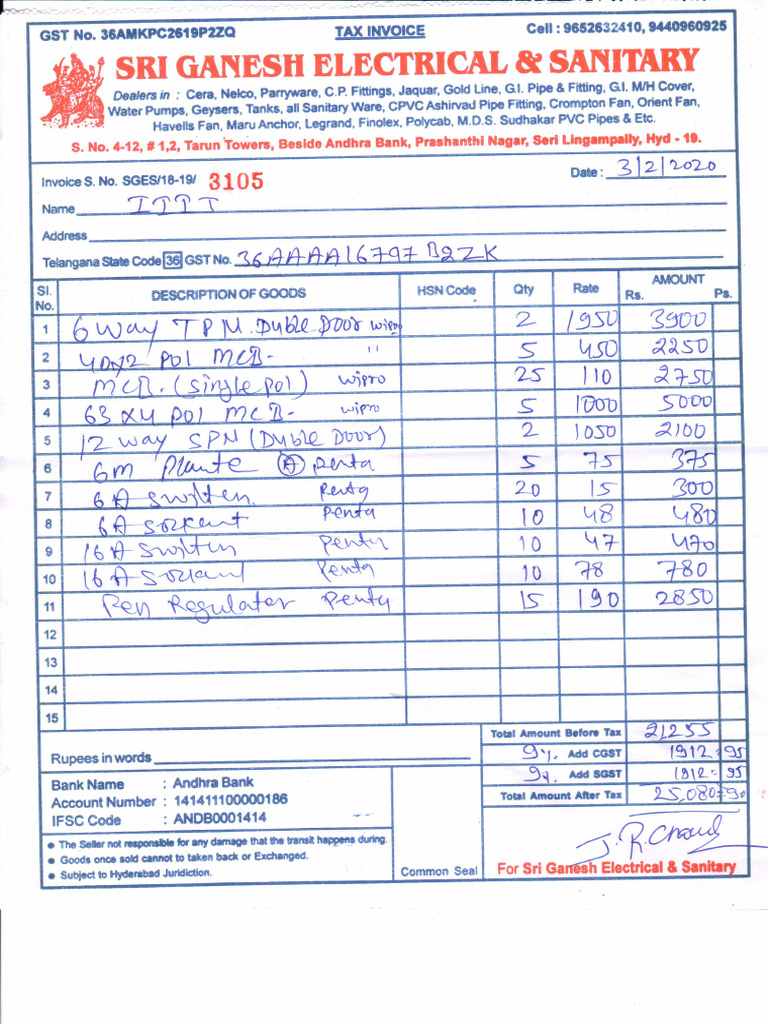 GST No. 36AMKPC2619P2ZQ TAX INVOICE Cell : 9652632410, 9440960925
SRI GANESH ELECTRICAL & SANITARY
Dealers in : Cera, Nelco, Parryware, C.P. Fittings, Jaquar, Gold Line, G.I. Pipe & Fitting, G.I. M/H Cover,
Water Pumps, Geysers, Tanks, all Sanitary Ware, CPVC Ashirvad Pipe Fitting, Crompton Fan, Orient Fan,
Havells Fan, Maru Anchor, Legrand, Finolex, Polycab, M.D.S. Sudhakar PVC Pipes & Etc.
S. No. 4-12, # 1,2, Tarun Towers, Beside Andhra Bank, Prashanthi Nagar, Seri Lingampally, Hyd - 19.
Invoice S. No. SGES/18-19/ 3105 Date : 3/2/2020
Name IIIT
Address
Telangana State Code 36 GST No. 36AAAAI6797B2ZK
Sl. No. DESCRIPTION OF GOODS HSN Code Qty Rate AMOUNT Rs. Ps.
1 6 way TPN. Duble Door wipro 2 1950 3900
2 pol MCB- " 5 450 2250
3 MCB. (Single pol) wipro 25 110 2750
4 63 x4 pol MCB- wipro 5 1000 5000
5 12 way SPN (Duble Door) 2 1050 2100
6 6m Plante (A) penta 5 75 375
7 6A switen. Penta 20 15 300
8 6A sorkent Penta 10 48 480
9 16A switen Penta 10 47 470
10 16A Penta 10 78 780
11 Regulater Penta 15 190 2850
12
13
14
15
Total Amount Before Tax 21255
Rupees in words 9%. Add CGST 1912=95
9%. Add SGST 1912=95
Total Amount After Tax 25,080=90
Bank Name : Andhra Bank
Account Number : 141411100000186
IFSC Code : ANDB0001414
The Seller not responsible for any damage that the transit happens during.
Goods once sold cannot to taken back or Exchanged.
Subject to Hyderabad Juridiction.
Common Seal
For Sri Ganesh Electrical & Sanitary